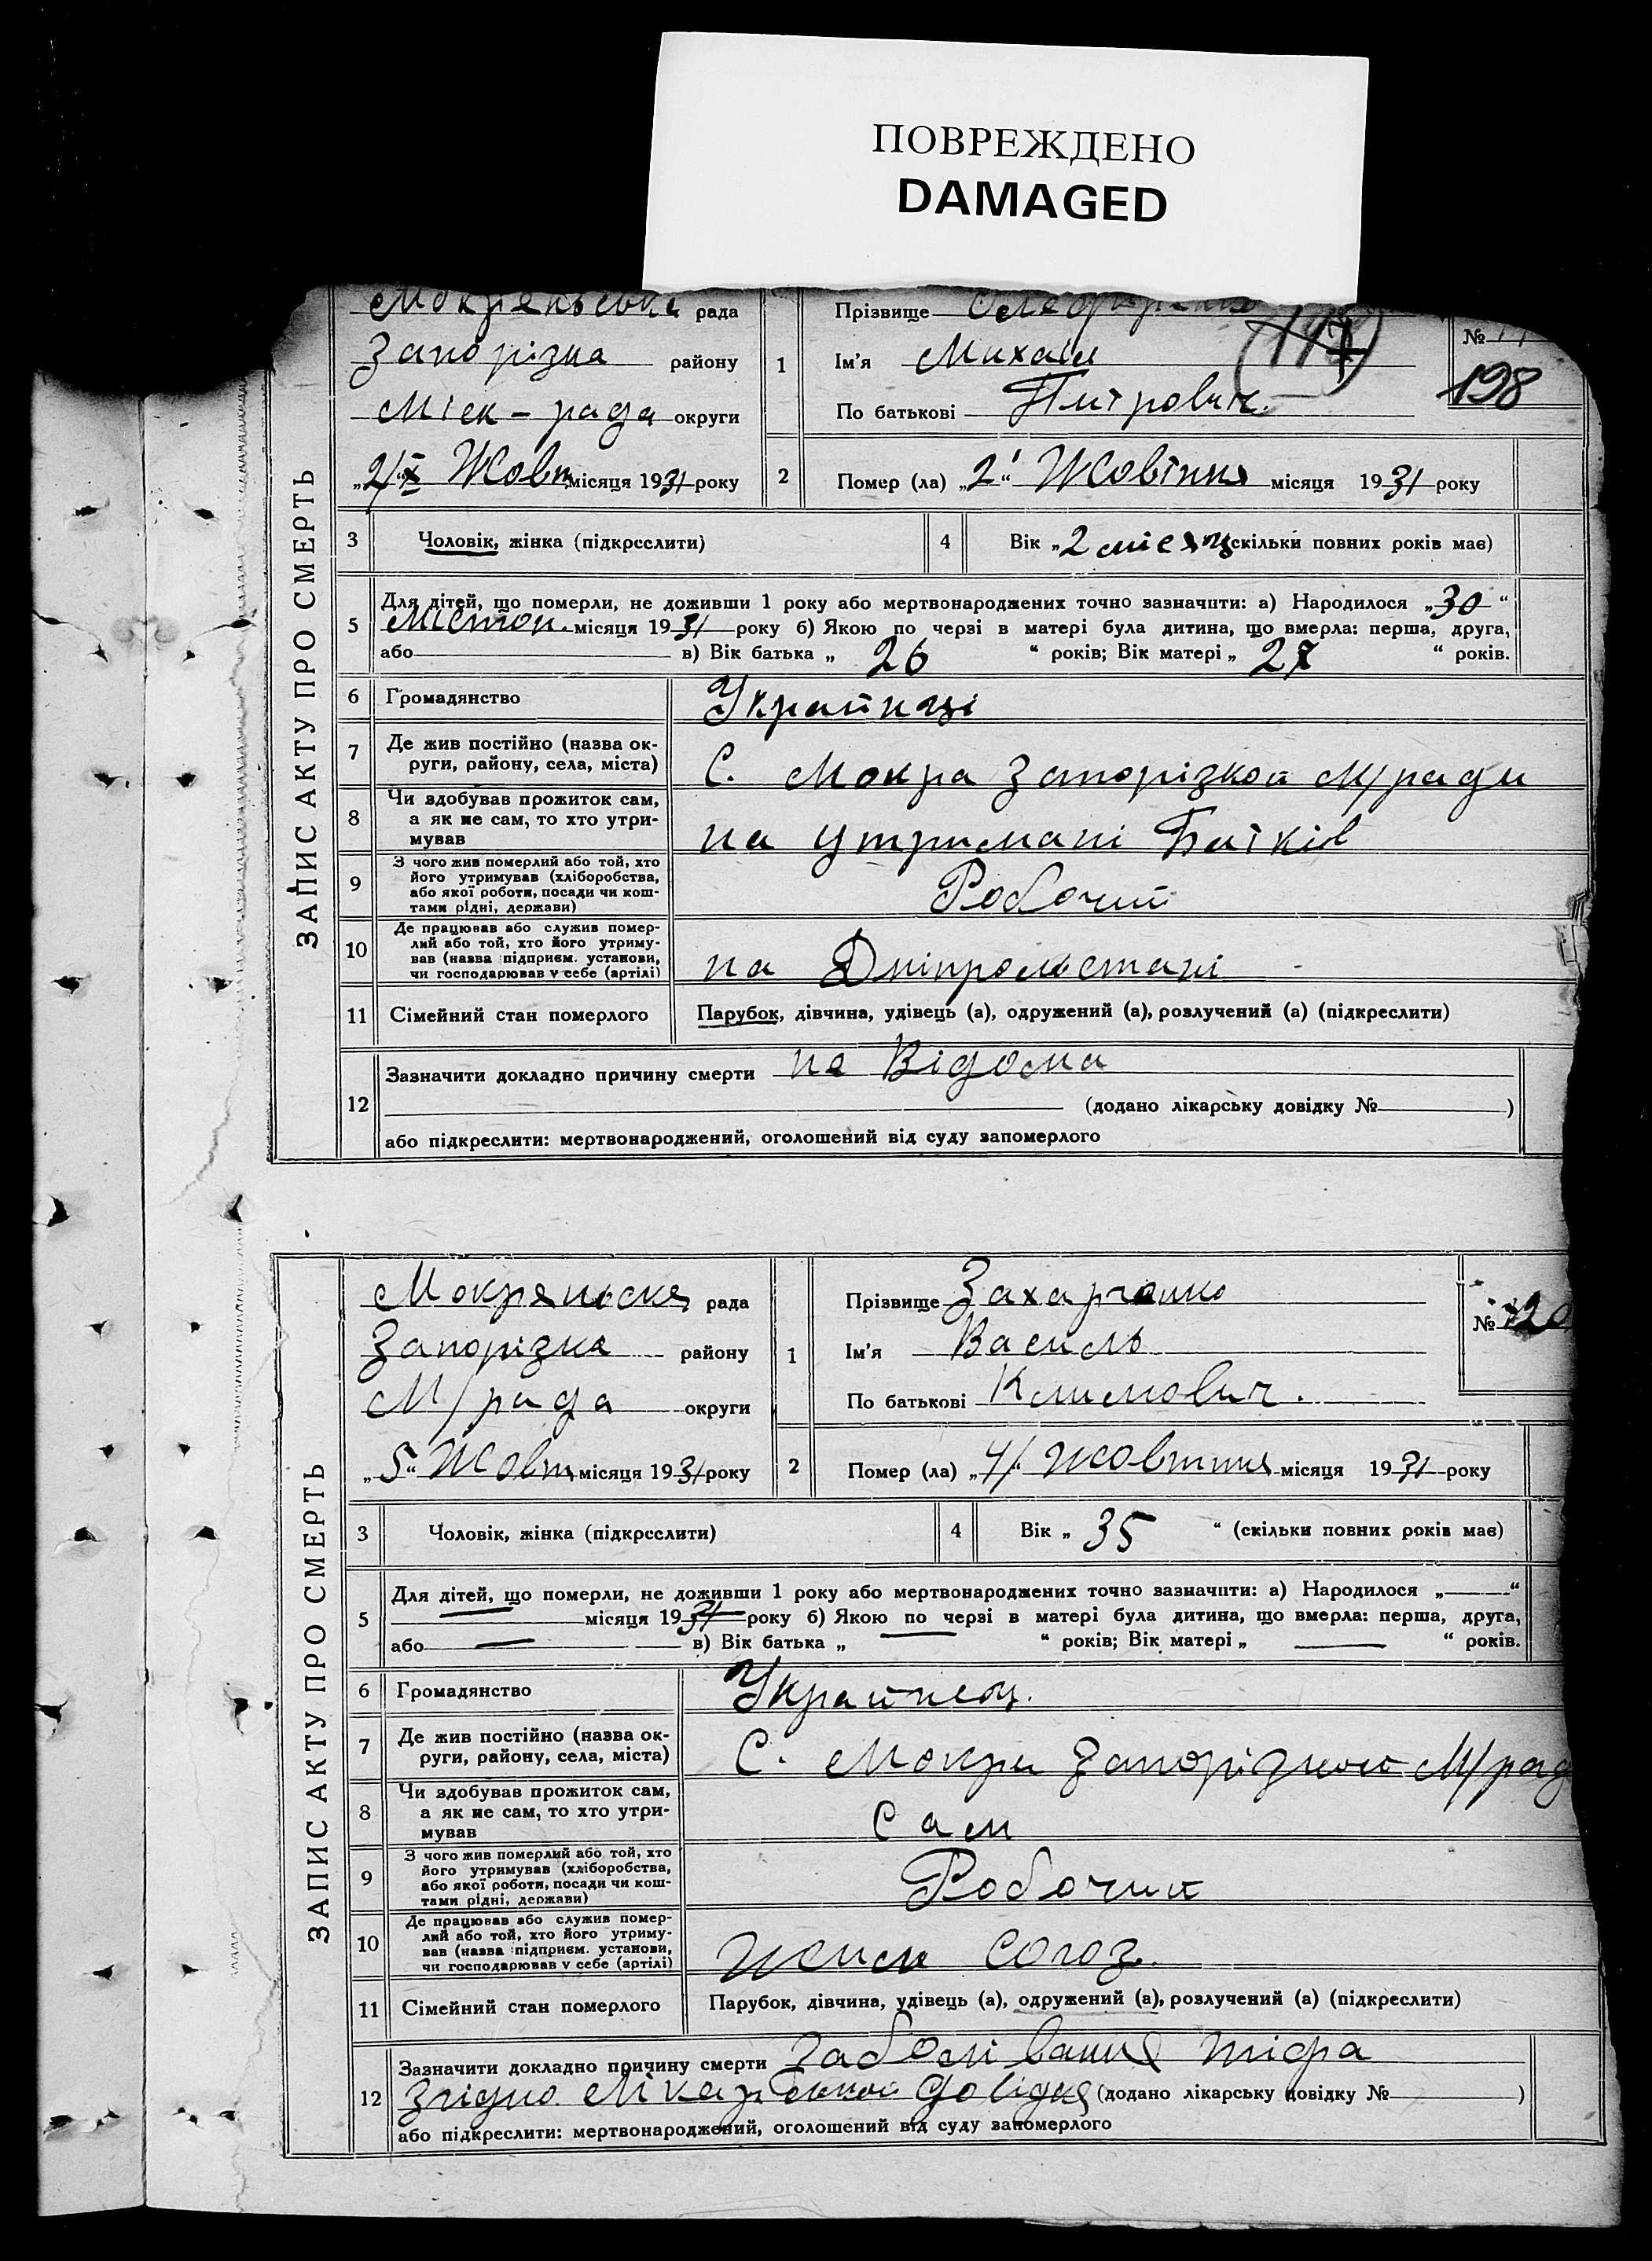 ПОВРЕЖДЕНО
DAMAGED
ЗАПИС АКТУ ПРО СМЕРТЬ
рада
Запорізка району
Міск - рада округи
Жовтн місяця 1931 року
1
Прізвище
Ім'я Михаіл
По батькові Питрович.
№
198
2 Помер (ла) „2“ Жовтння місяця 1931 року
3 Чоловік, жінка (підкреслити)
4 Вік „2 місяц скільки повних років має)
5 Для дітей, що померли, не доживши 1 року або мертвонароджених точно зазначити: а) Народилося „30“
місяця 1931 року б) Якою по черзі в матері була дитина, що вмерла: перша, друга,
або в) Вік батька „ 26 “ років; Вік матері „ 27 “ років.
6 Громадянство Украйнці
7 Де жив постійно (назва ок-
руги, району, села, міста) С. Мокра Запорізкой М/ради
8 Чи здобував прожиток сам,
а як не сам, то хто утри-
мував на утримані Батків
9 З чого жив померлий або той, хто
його утримував (хліборобства,
або якої роботи, посади чи кош-
тами рідні, держави) Робочий
10 Де працював або служив помер-
лий або той, хто його утриму-
вав (назва підприєм. установи,
чи господарював у себе (артілі) на
11 Сімейний стан померлого Парубок, дівчина, удівець (а), одружений (а), розлучений (а) (підкреслити)
12 Зазначити докладно причину смерти не Відома
(додано лікарську довідку № )
або підкреслити: мертвонароджений, оголошений від суду запомерлого
ЗАПИС АКТУ ПРО СМЕРТЬ
Мокряньска рада
Запорізка району
М/рада округи
„5“ Жовтн місяця 1931 року
1
Прізвище Захарченко
Ім'я Василь
По батькові Климович.
№ 120
2 Помер (ла) „4/“ Жовтння місяця 1931 року
3 Чоловік, жінка (підкреслити)
4 Вік „ 35 “ (скільки повних років має)
5 Для дітей, що померли, не доживши 1 року або мертвонароджених точно зазначити: а) Народилося „ — “
місяця 1931 року б) Якою по черзі в матері була дитина, що вмерла: перша, друга,
або — в) Вік батька „ — “ років; Вік матері „ — “ років.
6 Громадянство Украйнец.
7 Де жив постійно (назва ок-
руги, району, села, міста) С. Мокра Запорізкой М/рад
8 Чи здобував прожиток сам,
а як не сам, то хто утри-
мував Сам
9 З чого жив померлий або той, хто
його утримував (хліборобства,
або якої роботи, посади чи кош-
тами рідні, держави) Робочий
10 Де працював або служив помер-
лий або той, хто його утриму-
вав (назва підприєм. установи,
чи господарював у себе (артілі) Жил Союз.
11 Сімейний стан померлого Парубок, дівчина, удівець (а), одружений (а), розлучений (а) (підкреслити)
12 Зазначити докладно причину смерти Заболівання тіфа
Згідно Лікарьской довідки (додано лікарську довідку № )
або підкреслити: мертвонароджений, оголошений від суду запомерлого